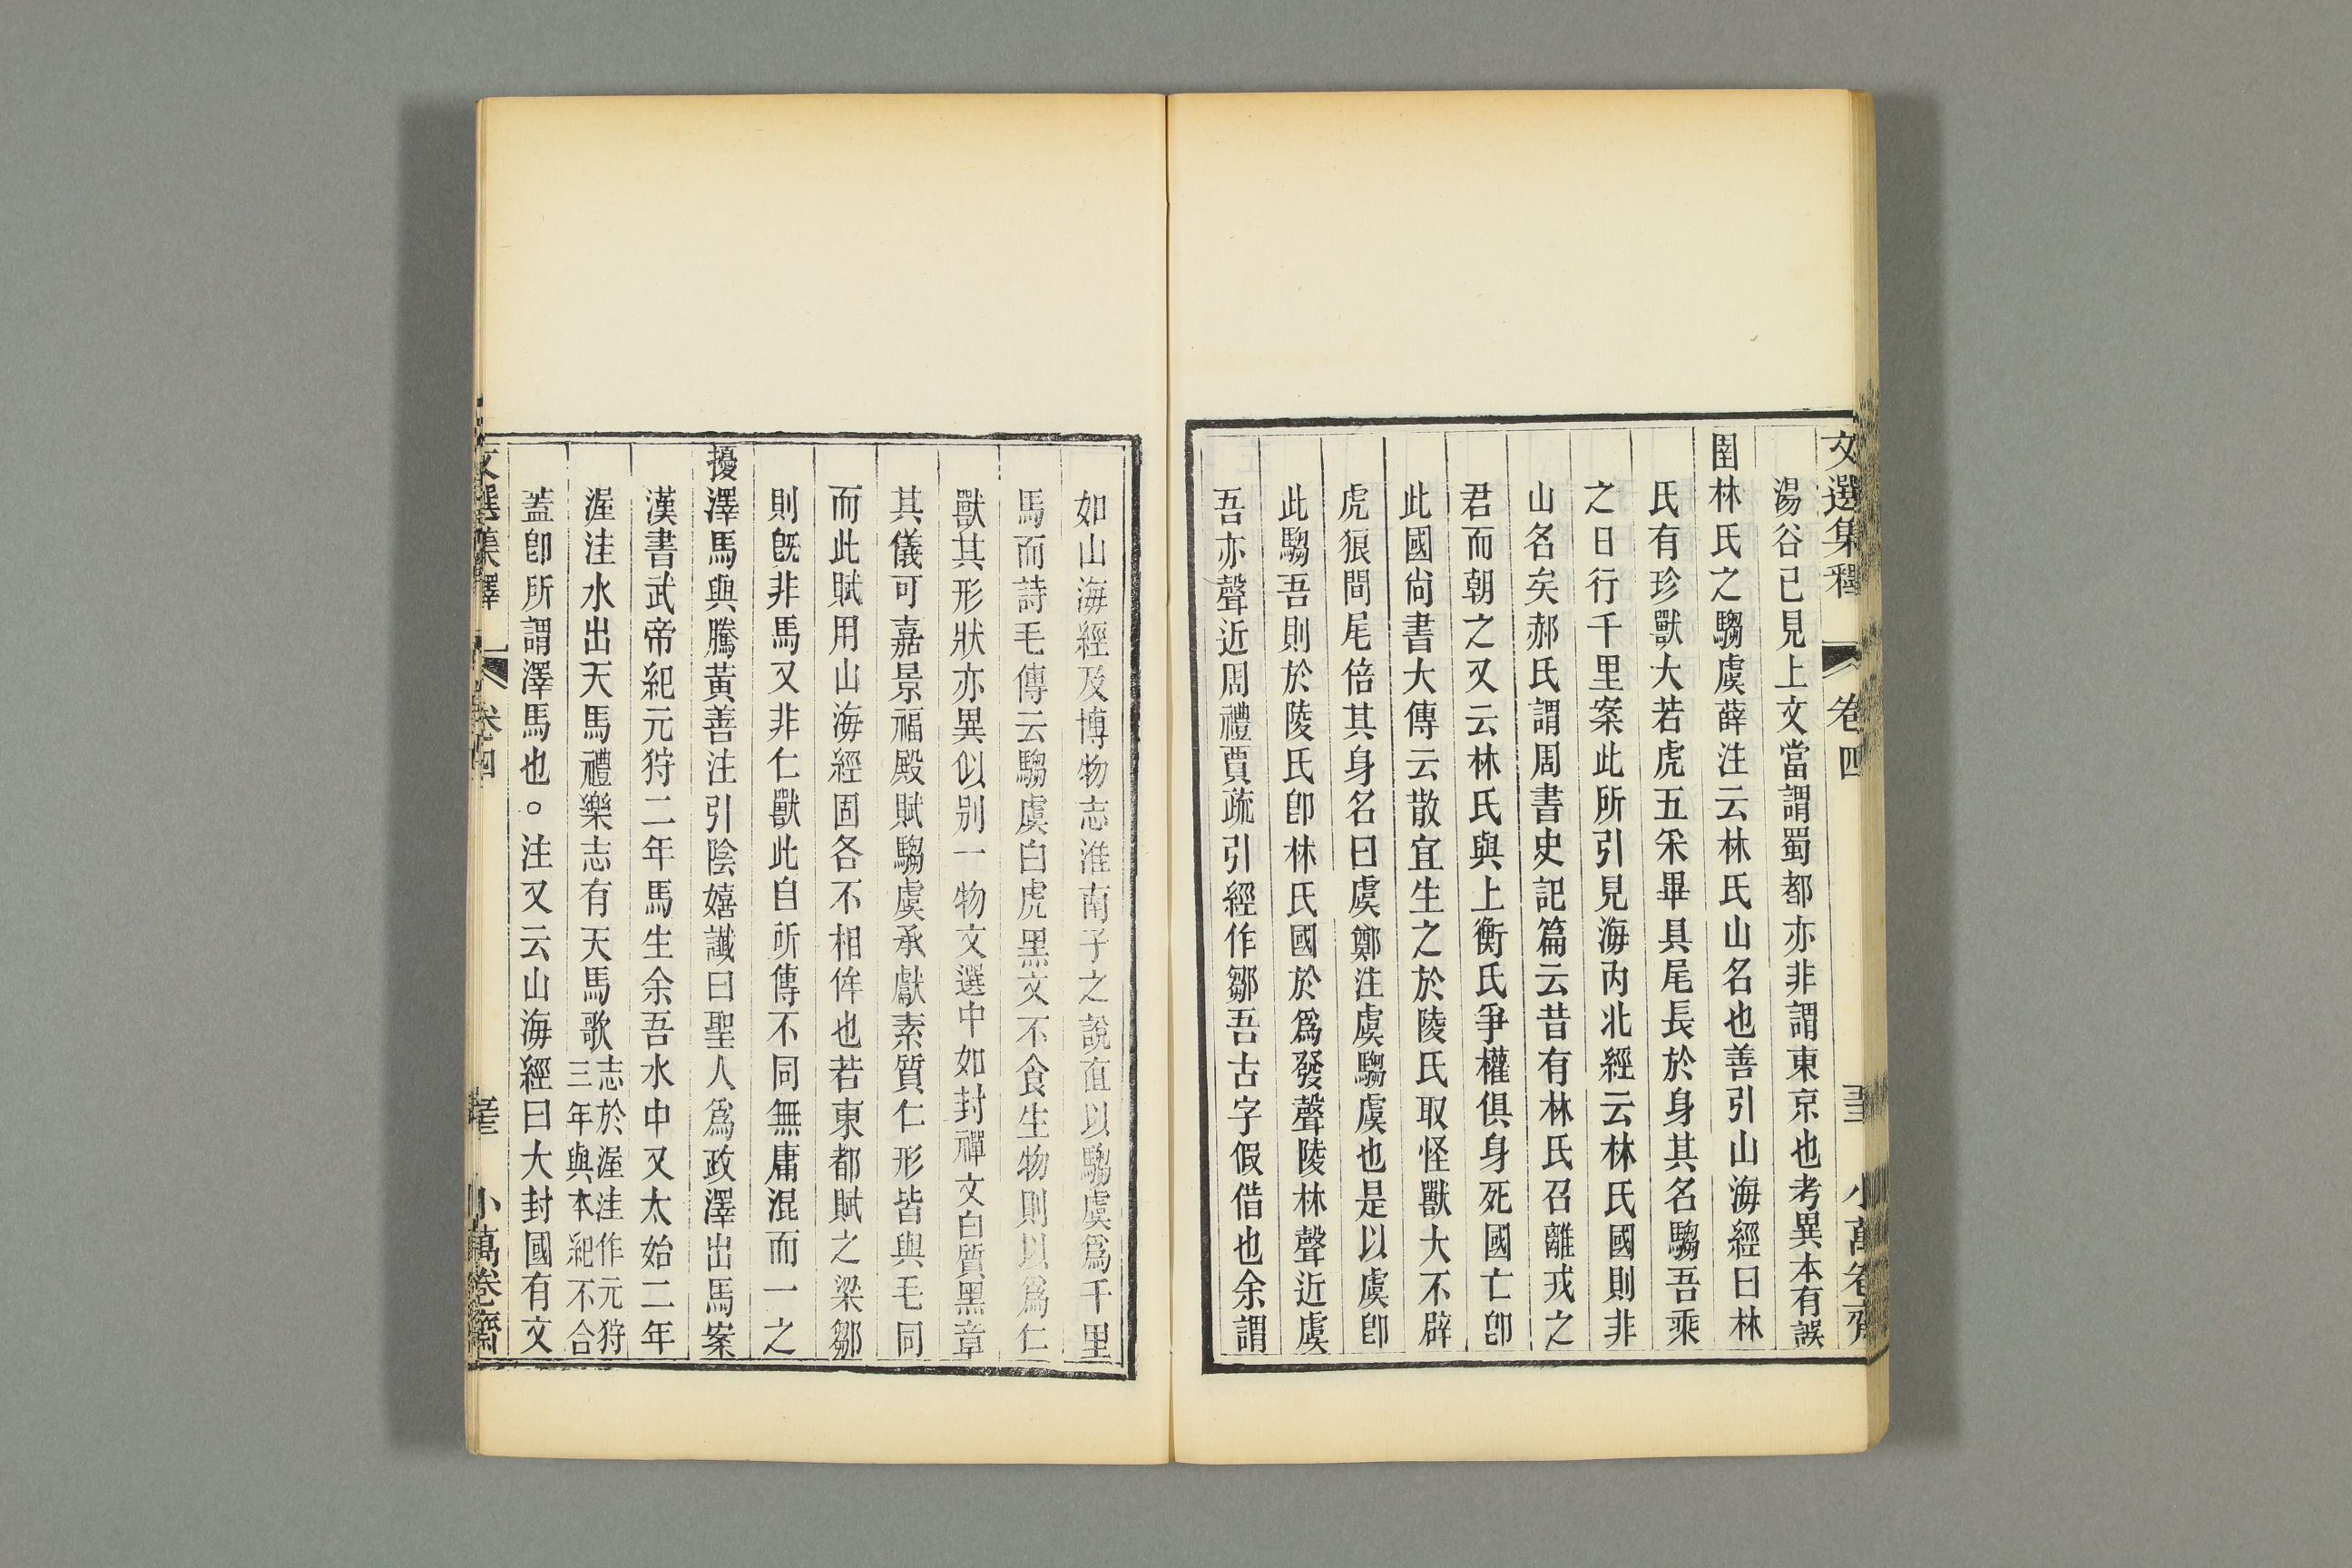 文選集釋 卷四 小萬卷齋
湯谷已見上文當謂蜀都亦非謂東京也考異本有誤
圉林氏之騶虞薛注云林氏山名也善引山海經曰林
氏有珍獸大若虎五采畢具尾長於身其名騶吾乘
之日行千里案此所引見海內北經云林氏國則非
山名矣郝氏謂周書史記篇云昔有林氏召離戎之
君而朝之又云林氏與上衡氏爭權俱身死國亡卽
此國尙書大傳云散宜生之於陵氏取怪獸大不辟
虎狼間尾倍其身名曰虞鄭注虞騶虞也是以虞卽
此騶吾則於陵氏卽林氏國於爲發聲陵林聲近虞
吾亦聲近周禮賈疏引經作鄒吾古字假借也余謂
如山海經及博物志淮南子之說直以騶虞爲千里
馬而詩毛傳云騶虞白虎黑文不食生物則以爲仁
獸其形狀亦異似别一物文選中如封禪文白質黑章
其儀可嘉景福殿賦騶虞承獻素質仁形皆與毛同
而此賦用山海經固各不相侔也若東都賦之梁鄒
則旣非馬又非仁獸此自所傳不同無庸混而一之
擾澤馬與騰黃善注引陰嬉讖曰聖人爲政澤出馬案
漢書武帝紀元狩二年馬生余吾水中又太始二年
渥洼水出天馬禮樂志有天馬歌志於渥洼作元狩三年與本紀不合
蓋卽所謂澤馬也。注又云山海經曰大封國有文
文選集釋 卷四 小萬卷齋